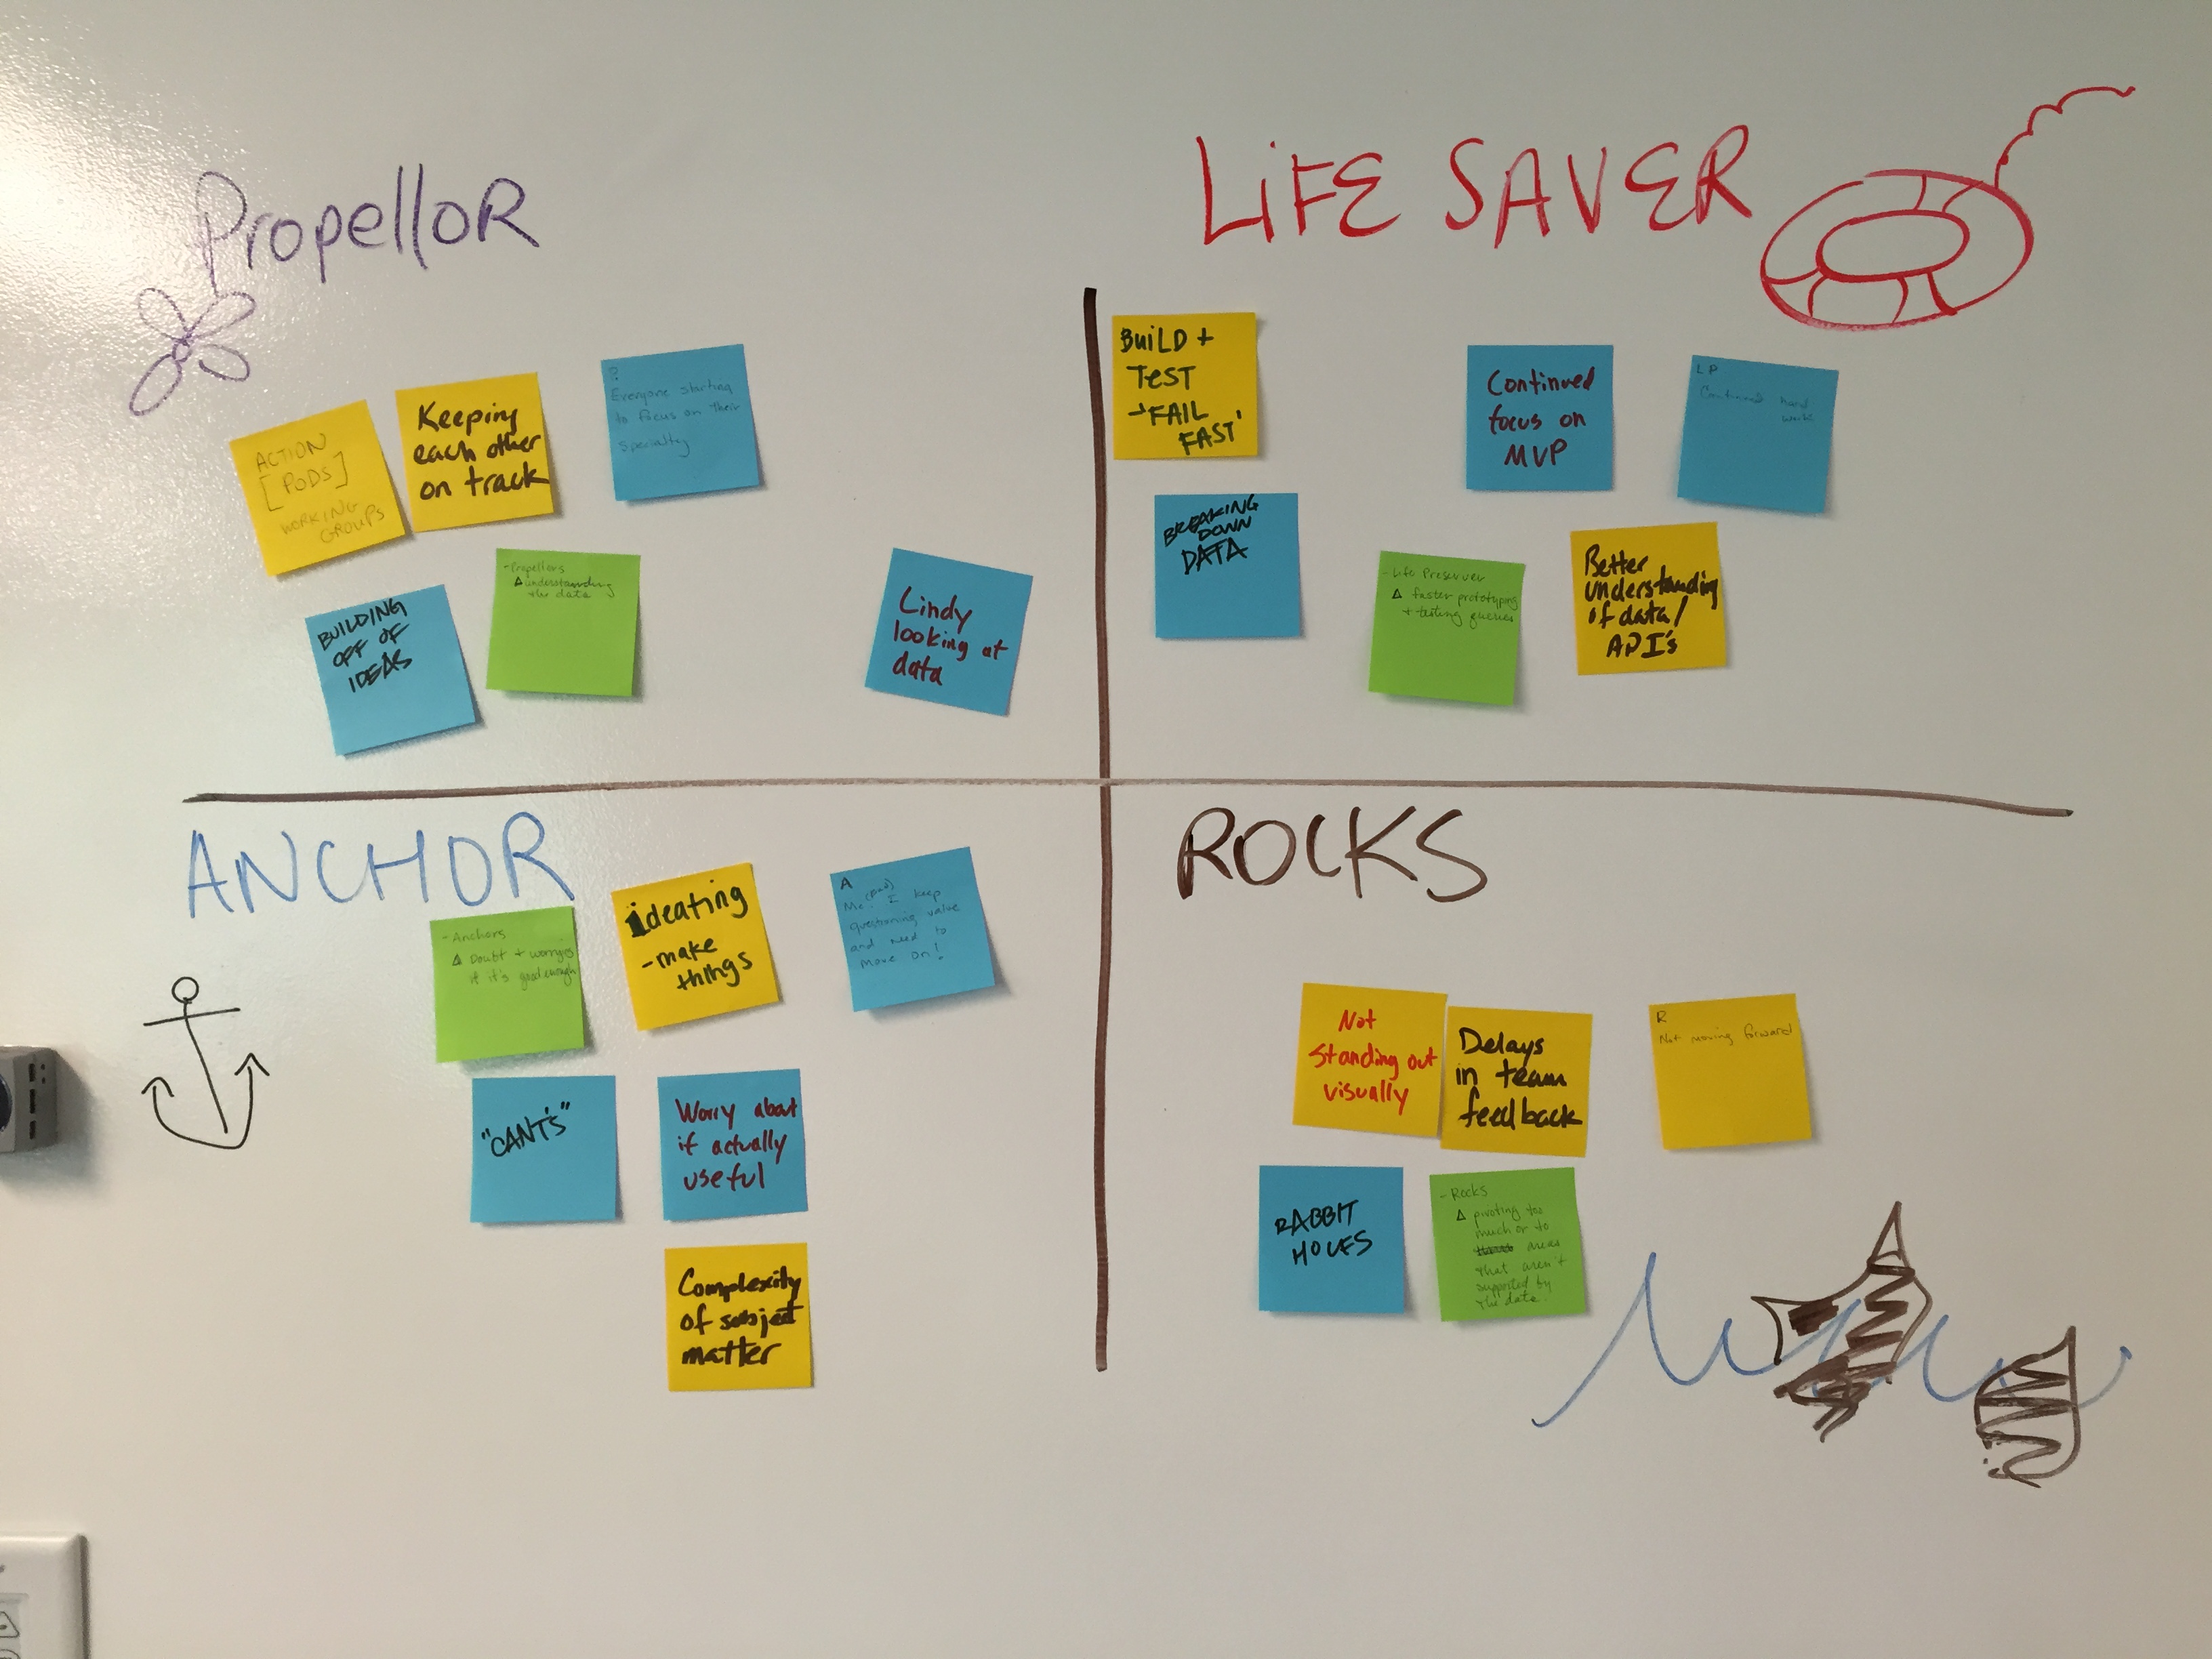 PropelloR
ACTION
[PODS]
WORKING
GROUPS
Keeping
each other
on track
P
Everyone starting
to focus on their
specialty
BUILDING
OFF OF
IDEAS
- Propellors
Δ understanding
the data
Lindy
looking at
data
LiFE SAVER
BuiLD +
TEST
- 'FAIL
FAST'
Continued
focus on
MVP
LP
Continued hard
work
BREAKING
DOWN
DATA
- Life Preserver
Δ faster prototyping
+ testing queries
Better
understanding
of data/
API's
ANCHOR
- Anchors
Δ Doubt + worrying
if it's good enough
ideating
- make
things
A
Me! I keep
questioning value
and need to
move on!
"CANT'S"
Worry about
if actually
useful
Complexity
of subject
matter
ROCKS
Not
Standing out
visually
Delays
in team
feedback
R
Not moving forward
RABBIT
HOLES
- Rocks
Δ pivoting too
much or to
areas
that aren't
supported by
the data.